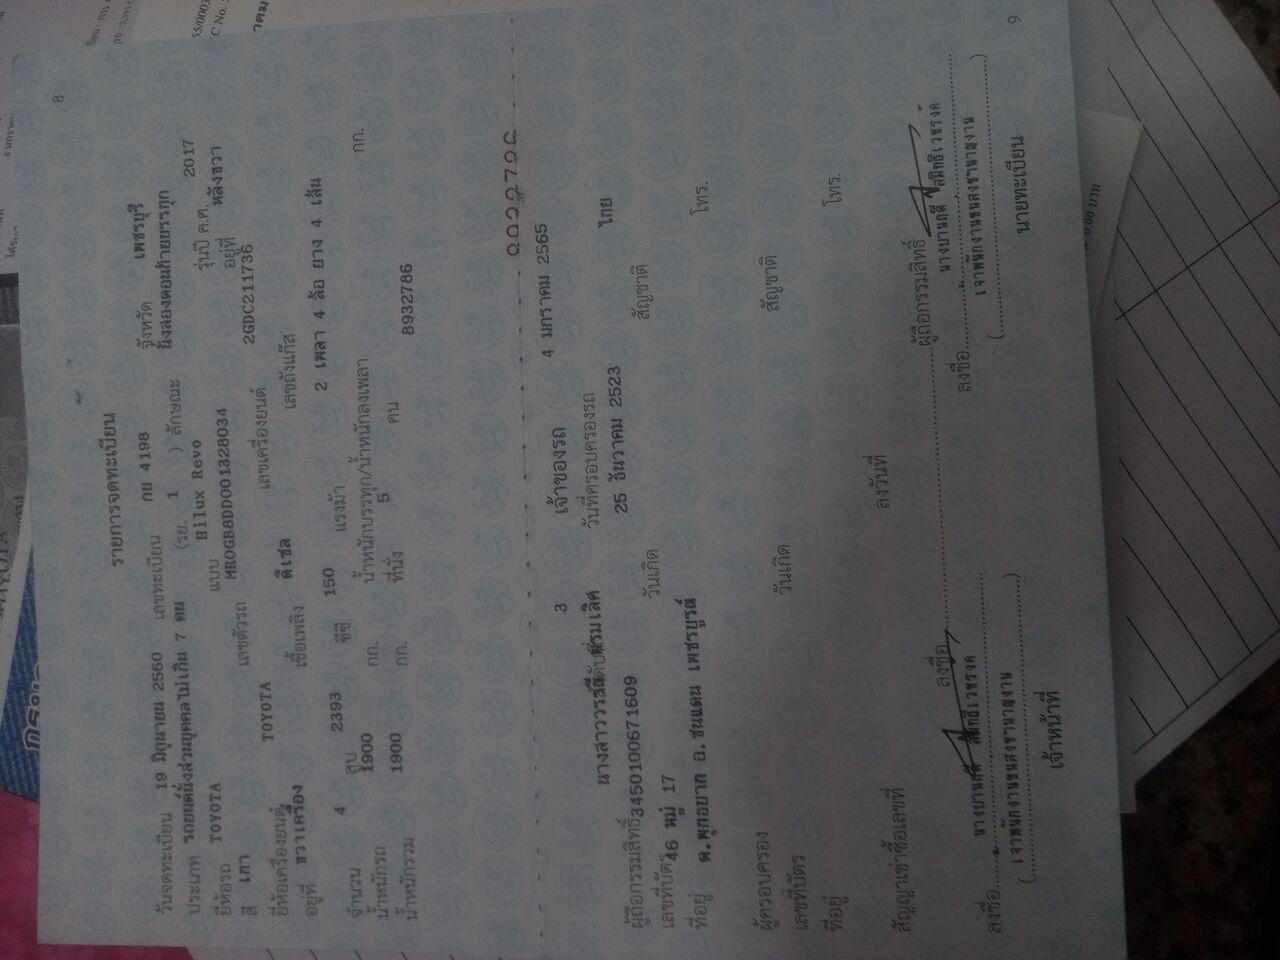 8
รายการจดทะเบียน
วันจดทะเบียน 19 มิถุนายน 2560 เลขทะเบียน กบ 4198 จังหวัด เพชรบุรี
ประเภท รถยนต์นั่งส่วนบุคคลไม่เกิน 7 คน (รย. 1 ) ลักษณะ นั่งสองตอนท้ายบรรทุก
ยี่ห้อรถ TOYOTA แบบ Hilux Revo รุ่นปี ค.ศ. 2017
สี เทา เลขตัวรถ MR0GB8DD001328034 อยู่ที่ หลังขวา
ยี่ห้อเครื่องยนต์ TOYOTA เลขเครื่องยนต์ 2GDC211736
อยู่ที่ ขวาเครื่อง เชื้อเพลิง ดีเซล เลขถังแก๊ส
จำนวน 4 สูบ 2393 ซีซี 150 แรงม้า 2 เพลา 4 ล้อ ยาง 4 เส้น
น้ำหนักรถ 1900 กก. น้ำหนักบรรทุก/น้ำหนักลงเพลา กก.
น้ำหนักรวม 1900 กก. ที่นั่ง 5 คน 8932786
เจ้าของรถ
3 วันที่ครอบครองรถ 4 มกราคม 2565
ผู้ถือกรรมสิทธิ์ นางสาววรรณี
เลขที่บัตร 3450100671609 วันเกิด 25 ธันวาคม 2523 สัญชาติ ไทย
ที่อยู่ 46 หมู่ 17 โทร.
ต.พุทธบาท อ.ชนแดน เพชรบูรณ์
ผู้ครอบครอง
เลขที่บัตร วันเกิด สัญชาติ
ที่อยู่ โทร.
สัญญาเช่าซื้อเลขที่ ลงวันที่
ลงชื่อ ผู้ถือกรรมสิทธิ์
ลงชื่อ ลงชื่อ
(เจ้าพนักงานขนส่งชำนาญงาน) (เจ้าพนักงานขนส่งชำนาญงาน)
เจ้าหน้าที่ นายทะเบียน
9
0.00 บาท